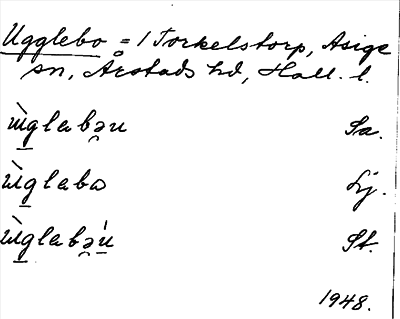 Ugglebo = 1 Torkelstorp, Asige
sn, Årstads hd, Hall. l.
ùglabə̯u Sa.
ùglabo Lj.
ùglabə̯́u St.
1948.